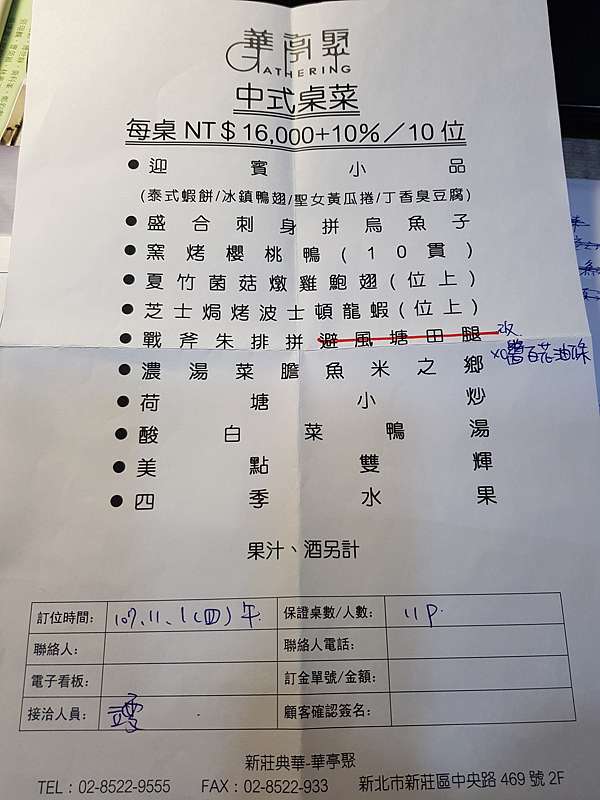 華亭聚
GATHERING
中式桌菜
每桌 NT$16,000+10%／10 位
●迎賓小品
(泰式蝦餅/冰鎮鴨翅/聖女黃瓜捲/丁香臭豆腐)
●盛合刺身拼烏魚子
●窯烤櫻桃鴨(10貫)
●夏竹菌菇燉雞鮑翅(位上)
●芝士焗烤波士頓龍蝦(位上)
●戰斧朱排拼避風塘田腿 改
XO醬百花油條
●濃湯菜膽魚米之鄉
●荷塘小炒
●酸白菜鴨湯
●美點雙輝
●四季水果
果汁、酒另計
訂位時間: 107.11.1(四)午 保證桌數/人數: 11P.
聯絡人: 聯絡人電話:
電子看板: 訂金單號/金額:
接洽人員: 顧客確認簽名:
新莊典華-華亭聚
TEL：02-8522-9555 FAX：02-8522-933 新北市新莊區中央路 469 號 2F